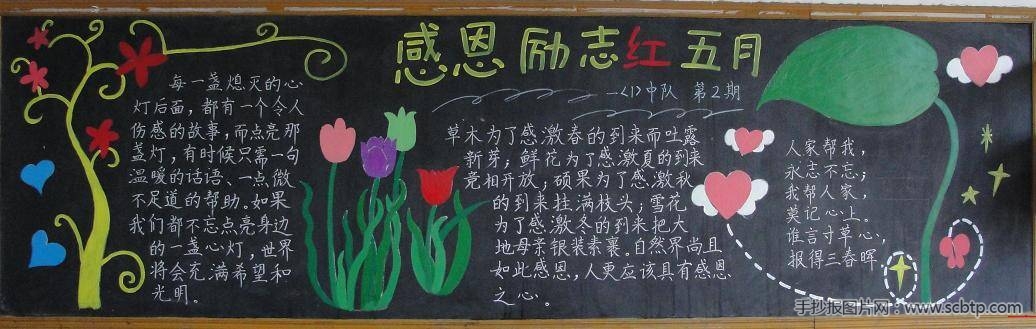 感恩励志红五月
一<1>中队 第2期
每一盏熄灭的心
灯后面,都有一个令人
伤感的故事,而点亮那
盏灯,有时候只需一句
温暖的话语、一点微
不足道的帮助。如果
我们都不忘点亮身边
的一盏心灯,世界
将会充满希望和
光明。
草木为了感激春的到来而吐露
新芽;鲜花为了感激夏的到来
竞相开放;硕果为了感激秋
的到来挂满枝头;雪花
为了感激冬的到来把大
地母亲银装素裹。自然界尚且
如此感恩,人更应该具有感恩
之心。
人家帮我,
永志不忘;
我帮人家,
莫记心上。
谁言寸草心,
报得三春晖
手抄报图片网:www.scbtp.com